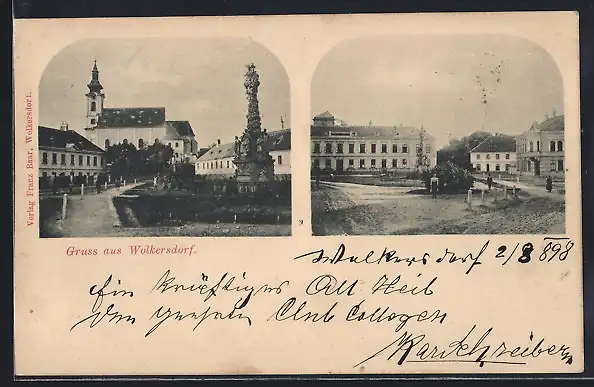 Verlag Franz Bäar, Wolkersdorf.
9
Gruss aus Wolkersdorf.
Wolkersdorf 2/8 898
Ein kräftiges All Heil
den Club Collegen